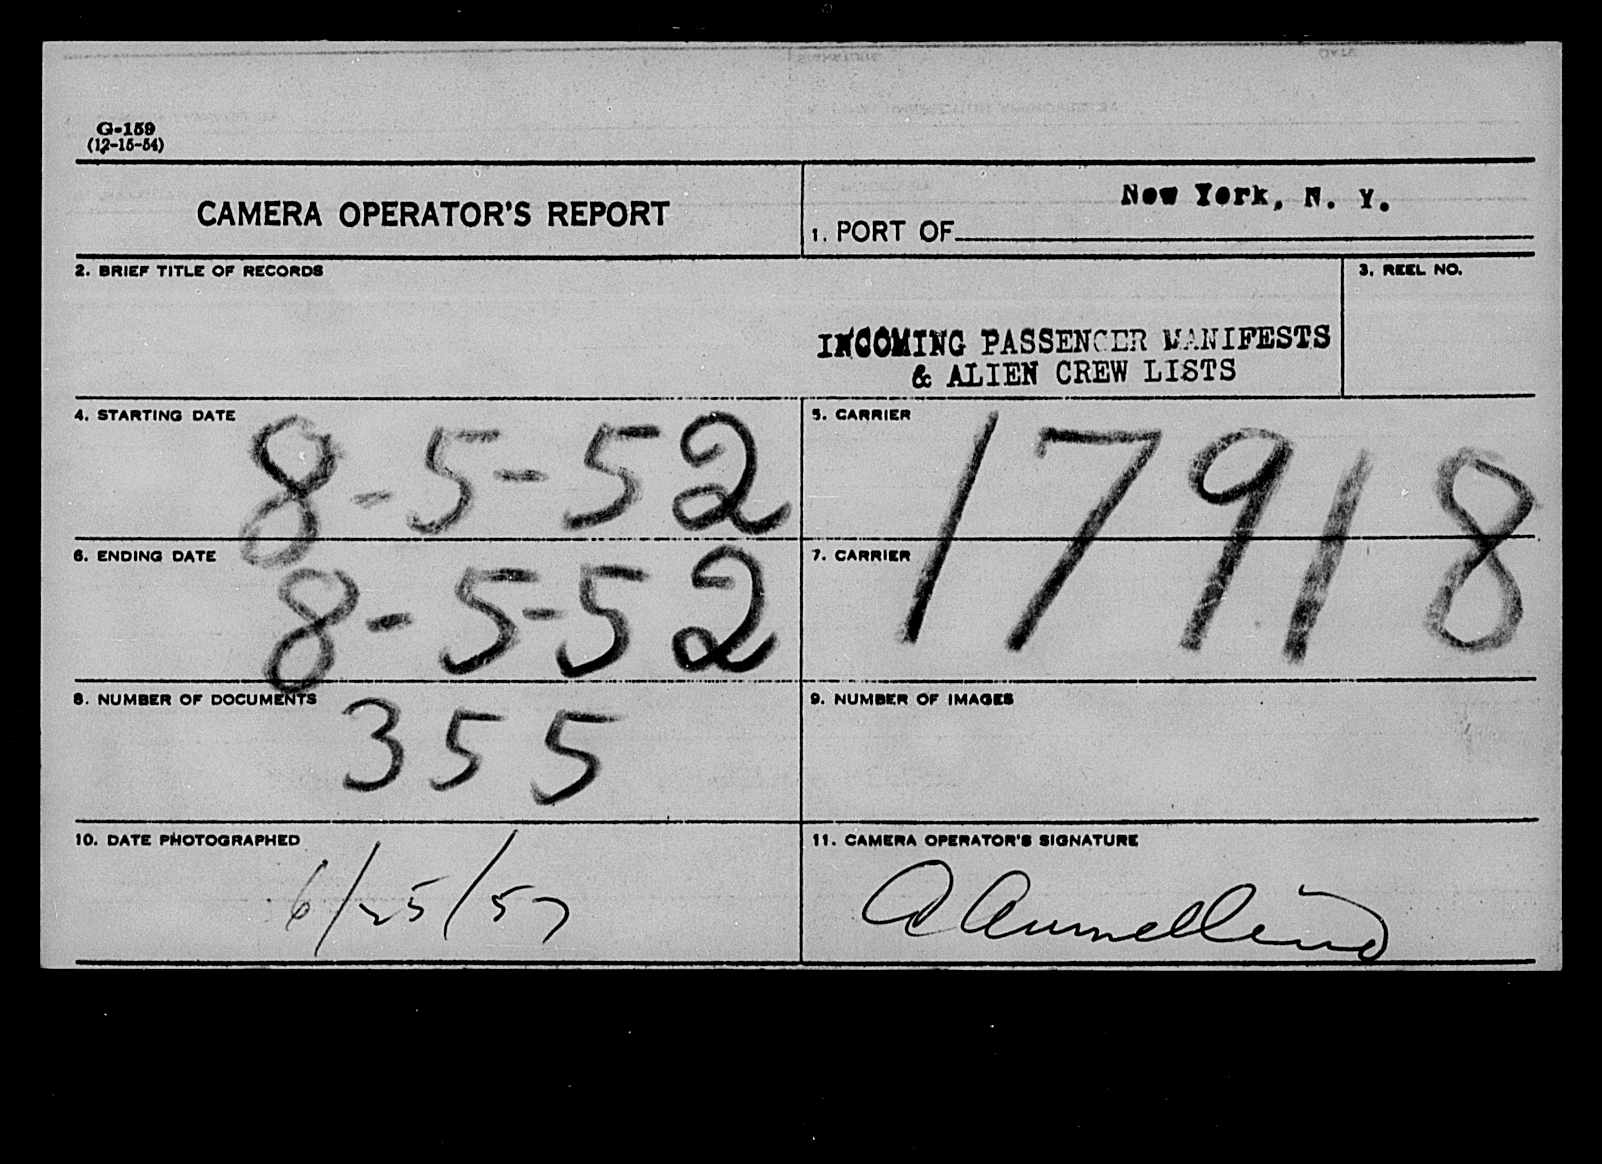 G-159
(12-15-54)
CAMERA OPERATOR'S REPORT
New York, N. Y.
1. PORT OF
2. BRIEF TITLE OF RECORDS
3. REEL NO.
INCOMING PASSENGER MANIFESTS
& ALIEN CREW LISTS
4. STARTING DATE
8-5-52
5. CARRIER
17918
6. ENDING DATE
8-5-52
7. CARRIER
8. NUMBER OF DOCUMENTS
355
9. NUMBER OF IMAGES
10. DATE PHOTOGRAPHED
6/25/57
11. CAMERA OPERATOR'S SIGNATURE